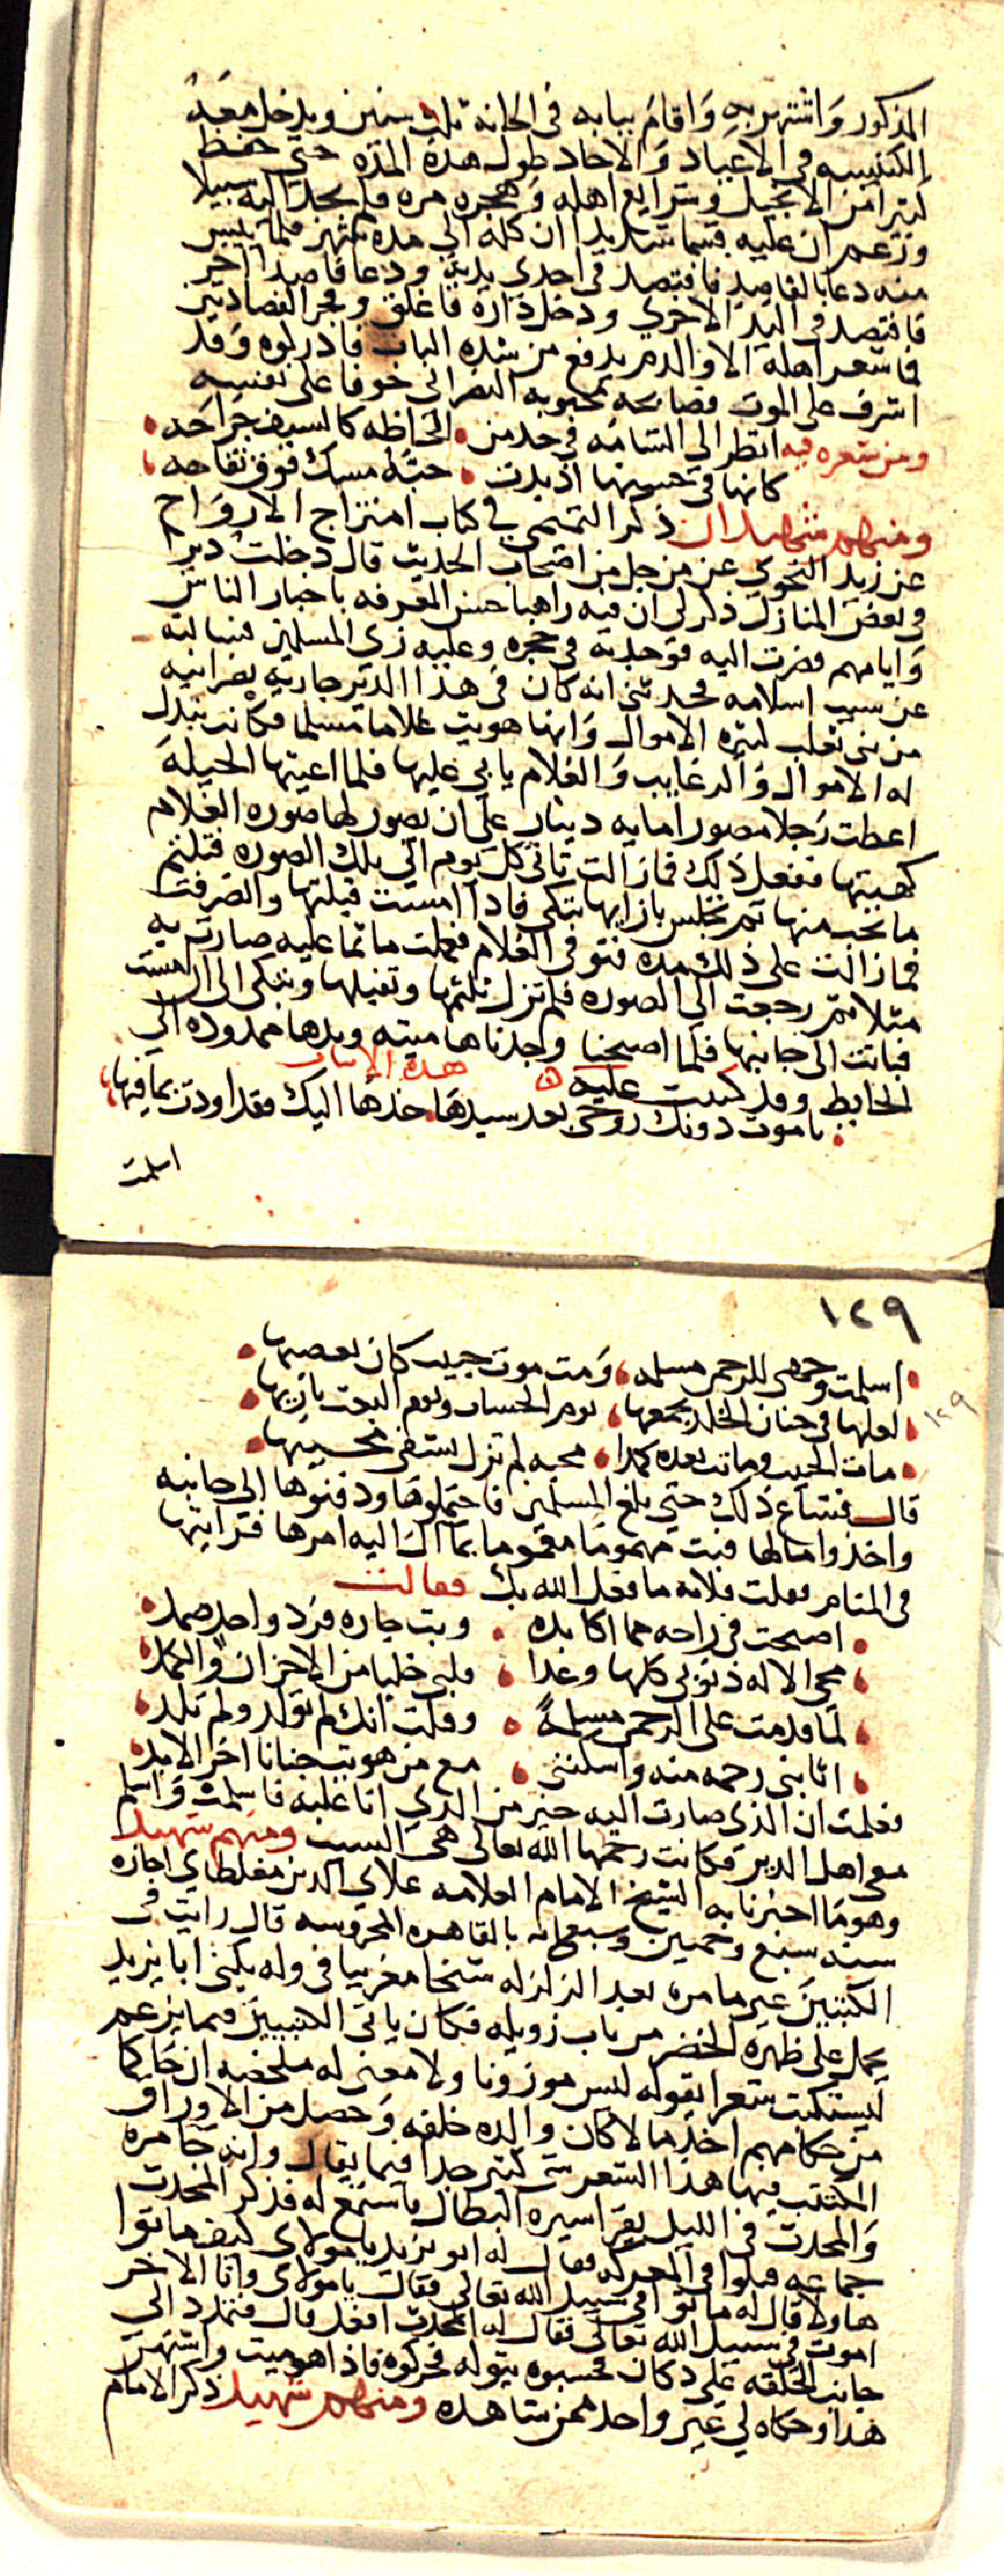 المذكور واشتهر به واقام ببابه في الحانة ثلاث سنين ويدخل معه
الكنيسه في الاعياد والاحاد طول هذه المده حتى حفظ
كثيرا من الانجيل وشرايع اهله وهجره مره فلم يجد اليه سبيلا
وزعم ان عليه قسما شديدا ان كلمه الي مده شهر فلما يئس
منه دعا بالفاصد فافتصد في احدي يديه ودعا فاصدا اخر
فافتصد في اليد الاخري ودخل داره فاغلق وفجر الفصادين
فما شعر اهله الا والدم يدفع من سده الباب فادركوه وقد
اشرف على الموت فصالحه محبوبه النصراني خوفا على نفسه
ومن شعره فيه انظر الي الشامه في خد من • الحاظه كالسيف جراحه •
كانها في حسنها اذ بدت • حبة مسك فوق تفاحه •
ومنهم شهيدان ذكر التميمي في كتاب امتزاج الارواح
عن زيد النحوي عن رجل من اصحاب الحديث قال دخلت ديرا
في بعض المنازل ذكر لي ان فيه راهبا حسن المعرفه باخبار الناس
وايامهم فصرت اليه فوجدته في حجره وعليه زي المسلمين فسالته
عن سبب اسلامه فحدثني انه كان في هذا الدير جاريه نصرانيه
من بني تغلب كثيره الاموال وانها هويت غلاما مسلما فكانت تبذل
له الاموال والرغايب والغلام يابي عليها فلما اعيتها الحيله
اعطت رجلا مصورا مايه دينار علي ان يصور لها صوره الغلام
كهيتها ففعل ذلك فما زالت تاتي كل يوم الي تلك الصوره فتلثم
ما تحب منها ثم تجلس بازايها تبكي فاذا امست قبلتها وانصرفت
فما زالت على ذلك مده فتوفي الغلام فعملت ماتما عليه صارت به
مثلا ثم رجعت الي الصوره فلم تزل تلثمها وتقبلها وتبكي الى ان امست
فباتت الى جانبها فلما اصبحنا وجدناها ميته ويدها ممدوده الي
الحايط وقد كتبت عليه هذه الابيات
• يا موت دونك روحي بعد سيدها • خذها اليك فقد اودت بما فيها
اسلمت
١٢٩
١٢٩
• اسلمت وجهي للرحمن مسلمه • ومت موت حبيب كان يعصيها •
• لعلها في جنان الخلد يجمعها • يوم الحساب ويوم البعث باريها •
• مات الحبيب وماتت بعده كمدا • محبه لم تزل تشقي محبيها •
قال فشاع ذلك حتي بلغ المسلمين فاحتملوها ودفنوها الى جانبه
واخذوا مالها فبت مهموما مغموما بما آل اليه امرها فرايتها
في المنام فقلت فلانه ما فعل الله بك فقالت
• اصبحت في راحه مما اكابده • وبت جاره فرد واحد صمد •
• محي الاله ذنوبي كلها وغدا • قلبي خليا من الاحزان والكمد •
• لما قدمت على الرحمن مسلمة • وقلت انك لم تولد ولم تلد •
• اثابني رحمه منه واسكنني • مع من هويت جنانا اخر الابد •
فعلمت ان الذي صارت اليه خير من الدي انا عليه فاسلمت واسلم
معي اهل الدير فكانت رحمها الله تعالى هي السبب ومنهم شهيد
وهو ما اخبرنا به الشيخ الامام العلامه علاي الدين مغلطاي اجازه
سنه سبع وخمسين وسبعمائه بالقاهره المحروسه قال رايت في
الكتبيين غير ما مره بعد الزلزله شخا مغربيا في وله يكني ابا يزيد
يحمل على ظهره الخضر من باب زويله فكان ياتي الكتبيين فيما يزعم
ليستكتب شعرا بقوله ليس موزونا ولا معني له ملخصه ان حاكما
من حكامهم اخذ مالا كان والده خلفه وحصل من الاوراق
المكتتب فيها هذا الشعر شي كثير جدا فيما يقال وانه جا مره
والمحدث في الليل يقرا سيره البطال فاستمع له فذكر المحدث
جماعه قتلوا في المعركه فقال له ابو يزيد يا مولاي كيف ماتوا
هاولا قال له ماتوا في سبيل الله تعالى فقال يا مولاي وانا الاخر
اموت في سبيل الله تعالى فقال له المحدث افعل قال فتمدد الي
جانب الحلقه على دكان فحسبوه يتوله فحركوه فاذا هو ميت واشتهر
هذا وحكاه لي غير واحد ممن شاهده ومنهم شهيد ذكر الامام